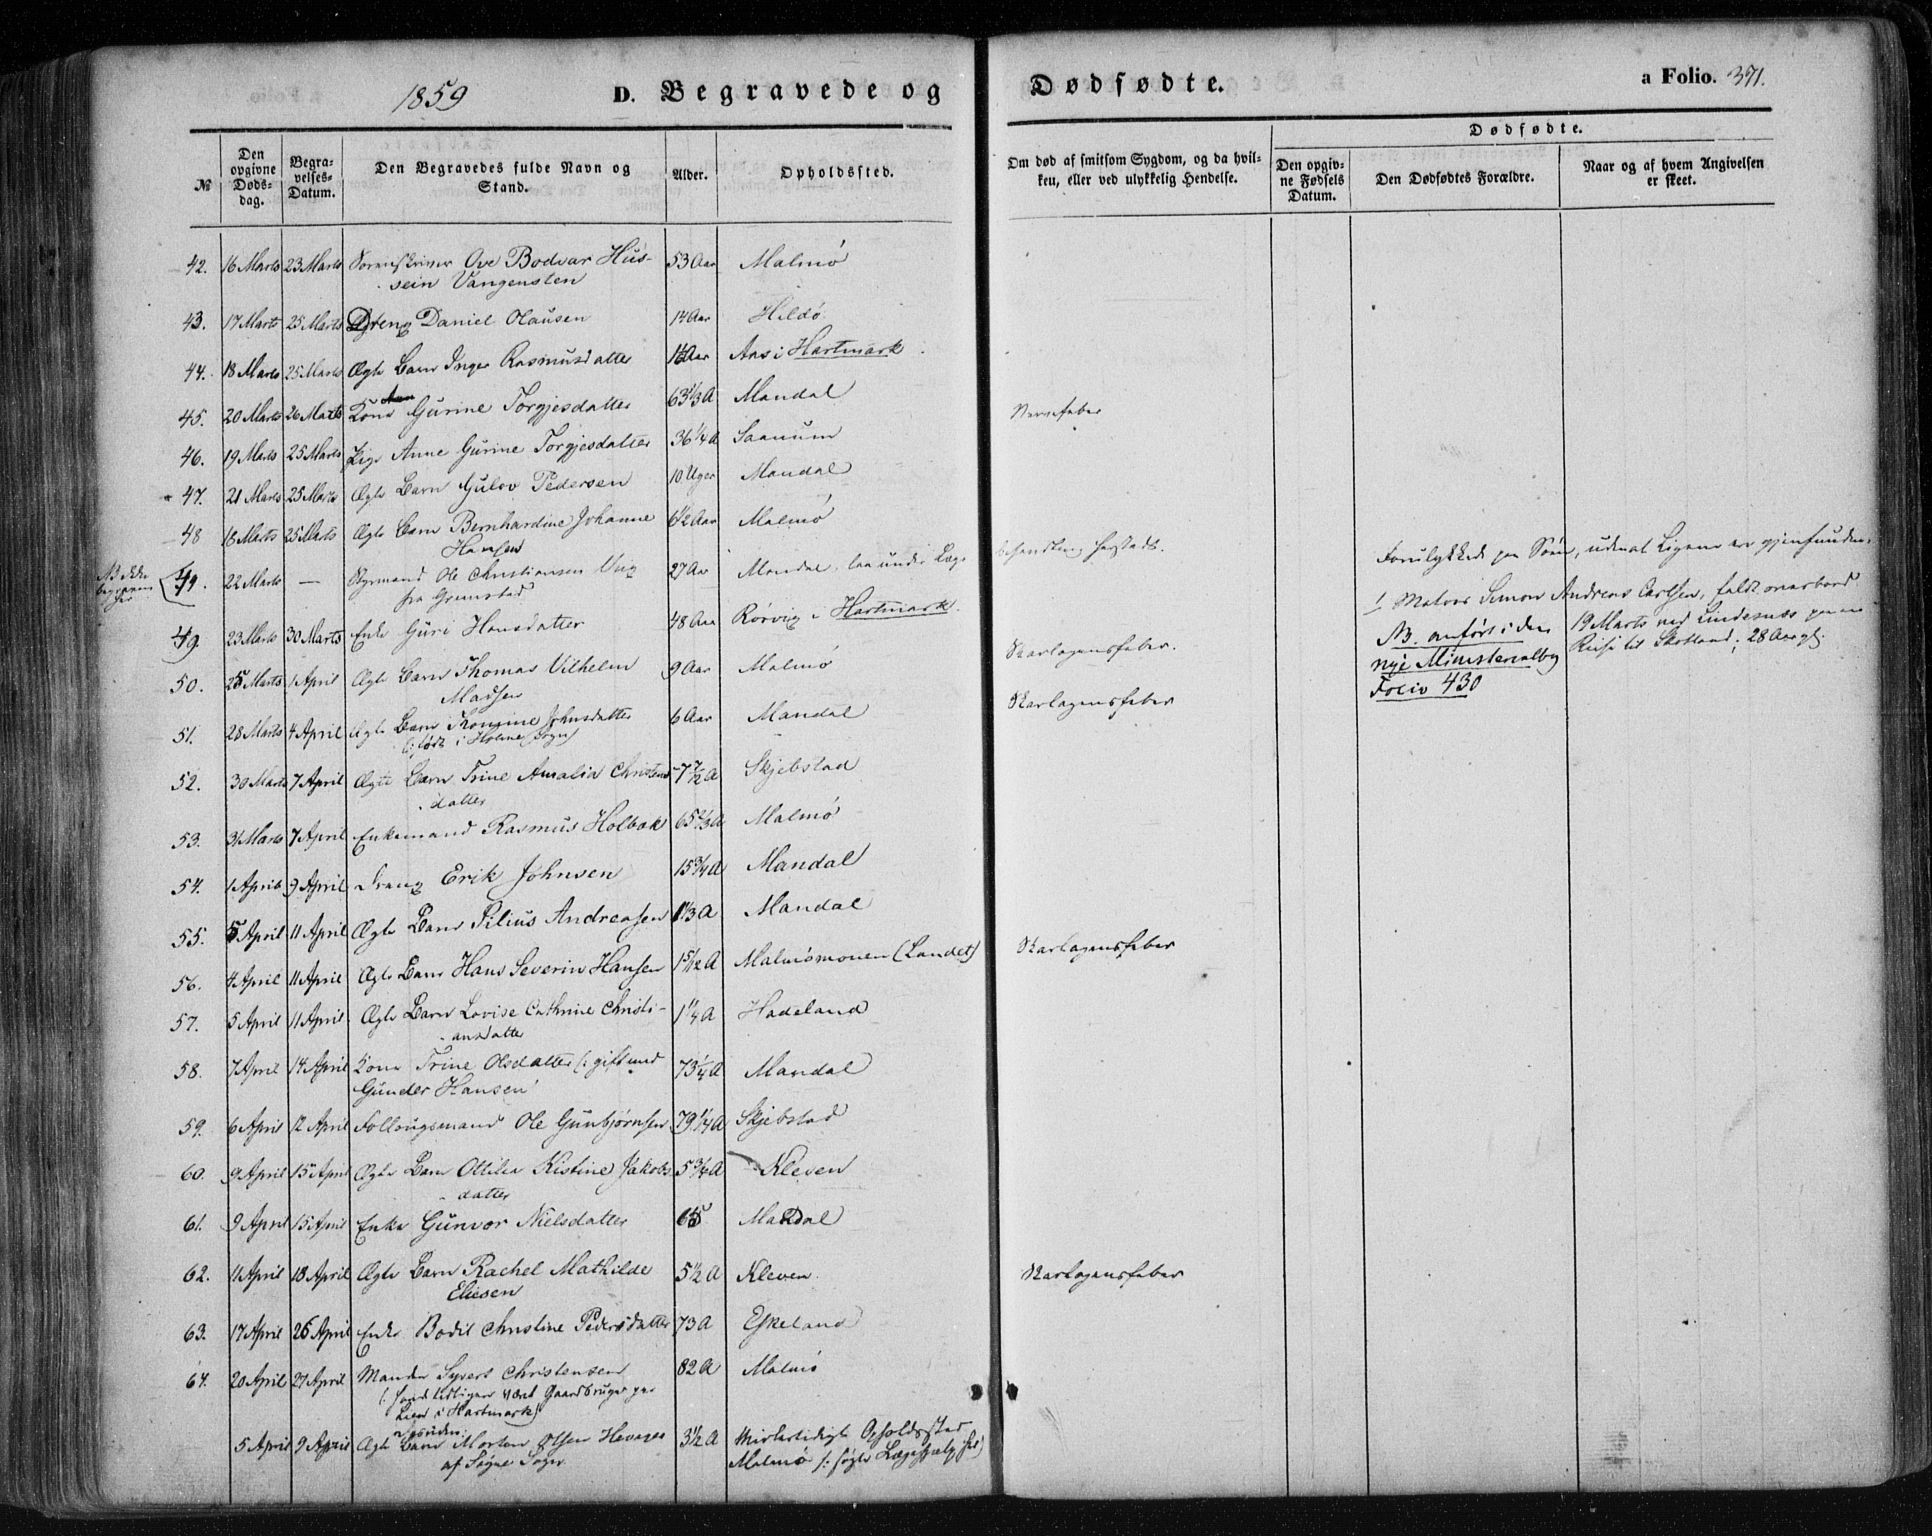 1859
D. Begravede og
Dødfødte.
a Folio. 371.
Dødfødte.
№
Den opgivne Døds-dag.
Begra-velses-Datum.
Den Begravedes fulde Navn og Stand.
Alder.
Opholdssted.
Om død af smitsom Sygdom, og da hvil-ken, eller ved ulykkelig Hendelse.
Den opgiv-ne Fødsels Datum.
Den Dødfødtes Forældre.
Naar og af hvem Angivelsen er skeet.
42. 16 Marts 23 Marts Sorenskriver Ove Bodvar Hus- 53 Aar Malmö
sein Vangensten
43. 17 Marts 25 Marts Dreng Daniel Olausen 14 Aar Hildö
44. 18 Marts 25 Marts Ægte Barn Inger Rasmusdatter Aas i Hartmark
45. 20 Marts 26 Marts Kone Gurine Torgjesdatter 63 1/3 A Mandal Nervefeber
46. 19 Marts 25 Marts Pige Anne Gurine Torgjesdatter 36 1/4 A Saanum
47. 21 Marts 25 Marts Ægte Barn Gulov Pedersen 10 Uger Mandal
48 18 Marts 25 Marts Ægte Barn Bernhardine Johanne 6 1/2 Aar Malmö
Hansen
NB ikke
begraven
her
49. 22 Marts — Styrmand Ole Christiansen 27 Aar Mandal, laa under Læge behandling hersteds.
fra Grimstad
49. 23 Marts 30 Marts Enke Guri Hansdatter 48 Aar Rörvig i Hartmark.
50. 25 Marts 1 April Ægte Barn Thomas Vilhelm 9 Aar Malmö Skarlagensfeber.
Madsen
51. 28 Marts 4 April Ægte Barn Johnsdatter 6 Aar Mandal Skarlagensfeber
(: født i Holme Sogn)
52. 30 Marts 7 April Ægte Barn Trine Amalia Christens- 7 7/12 A Skjebstad
datter
53. 31 Marts 7 April Enkemand Rasmus Holbæk 65 2/3 A Malmö
54. 1 April 9 April Dreng Erik Johnsen 15 3/4 A Mandal
55. 5 April 11 April Ægte Barn Pilius Andreasen 1 1/3 A Mandal
56. 4 April 11 April Ægte Barn Hans Severin Hansen 1 5/12 A Malmömonen (Landet) Skarlagensfeber
57. 5 April 11 April Ægte Barn Lovise Cathrine Christi- 1 1/4 A Hadeland
ansdatter
58. 7 April 14 April Kone Trine Olsdatter (: gift med 73 1/4 A Mandal
Gunder Hansen
59. 6 April 12 April Ole Gunbjørnsen 79 1/4 A Skjebstad
60. 9 April 15 April Ægte Barn Ottilia Kistine Jakobs 5 3/4 A Kleven
datter
61. 9 April 15 April Enke Gunvor Nielsdatter Mandal
62. 11 April 18 April Ægte Barn Rachel Mathilde 5 1/2 A Kleven Skarlagensfeber
Eliesen
63. 17 April 26 April Enke Bodil Christine Pedersdatter 73 A Eskeland
64. 20 April 27 April Manden Syvert Christensen 82 A Malmö
(: som tidligere været Gaardbruger paa
Lien i Hartmark)
5 April 9 April Ægte Barn Morten Olsen 3 1/2 A Midlertidigt Opholdssted
af Søgne Sogn Malmö /: søgte Lægehjælp her)
Forulykkede paa Søen, uden at Ligene er gjenfundne.
1/ Matros Simon Andreas Carlsen, faldt overbord
19 Marts ved Lindesnæs paa en
Reise til Skotland; 28 Aar gl:
NB. anført i den
nye Ministerialbog
Folio 430